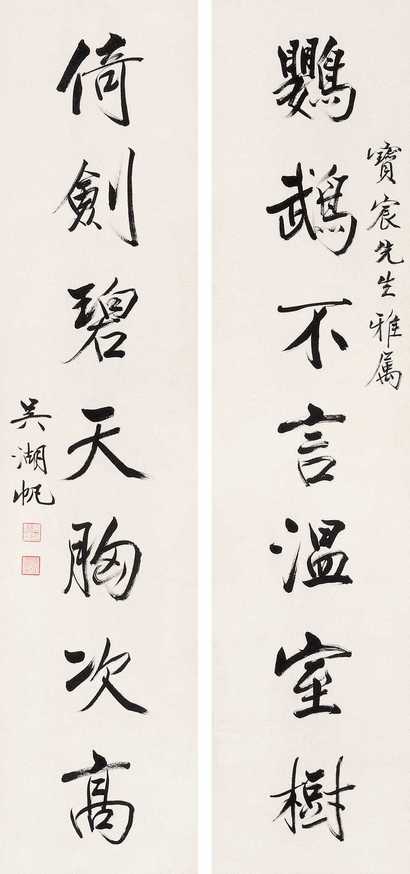 寶宸先生雅属
鸚鵡不言溫室樹
倚劍碧天胸次高
吳湖帆